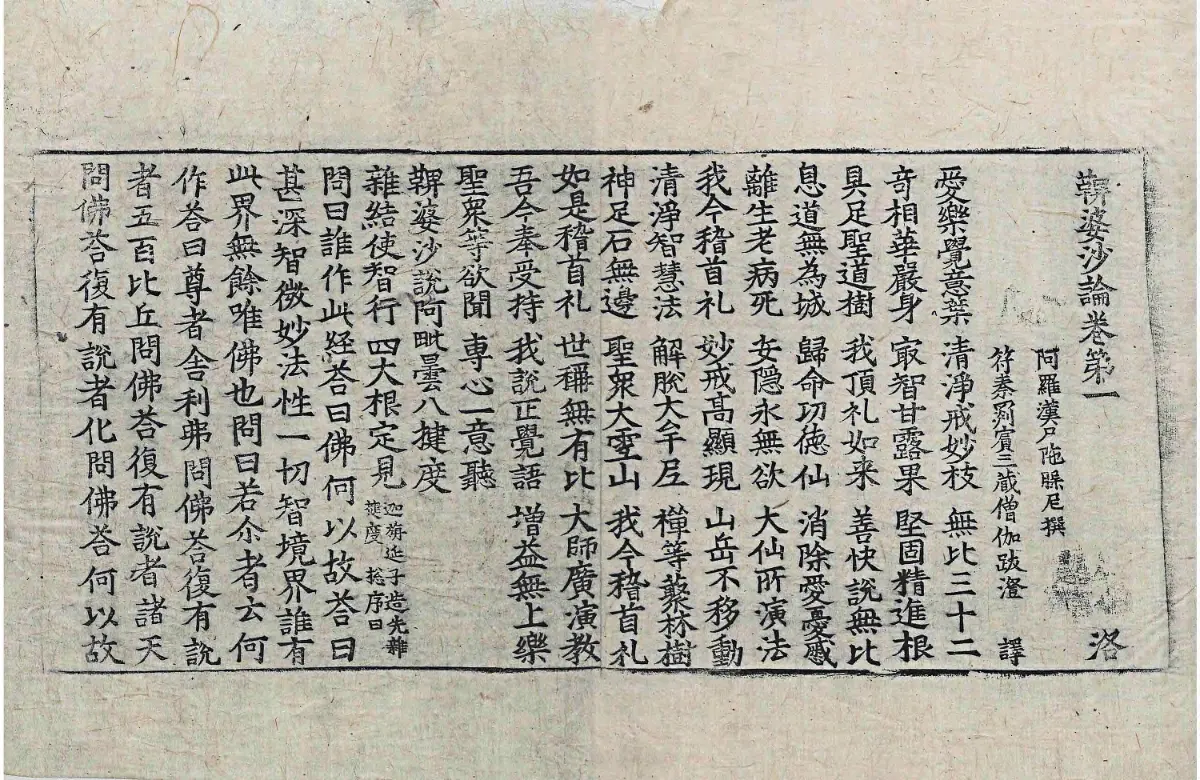 鞞婆沙論卷第一 洛
阿羅漢尸陁槃尼撰
符秦罽賔三藏僧伽跋澄 譯
愛樂覺意葉 清淨戒妙枝 無比三十二
奇相華嚴身 㝡智甘露果 堅固精進根
具足聖道樹 我頂礼如来 善快說無比
息道無為城 歸命功徳仙 消除愛憂慼
離生老病死 安隱永無欲 大仙所演法
我今稽首礼 妙戒高顯現 山岳不移動
清淨智慧法 解脫大千尼 禪等藂林樹
神足石無邊 聖衆大雪山 我今稽首礼
如是稽首礼 世稱無有比 大師廣演教
吾今奉受持 我說正覺語 增益無上樂
聖衆等欲聞 專心一意聽
鞞婆沙說阿毗曇八揵度
雜結使智行四大根定見 迦旃延子造先雜揵度 捴序曰
問曰誰作此経荅曰佛何以故荅曰
甚深智微妙法性一切智境界誰有
此界無餘唯佛也問曰若尒者云何
作荅曰尊者舎利弗問佛荅復有說
者五百比丘問佛荅復有說者諸天
問佛荅復有說者化問佛荅何以故